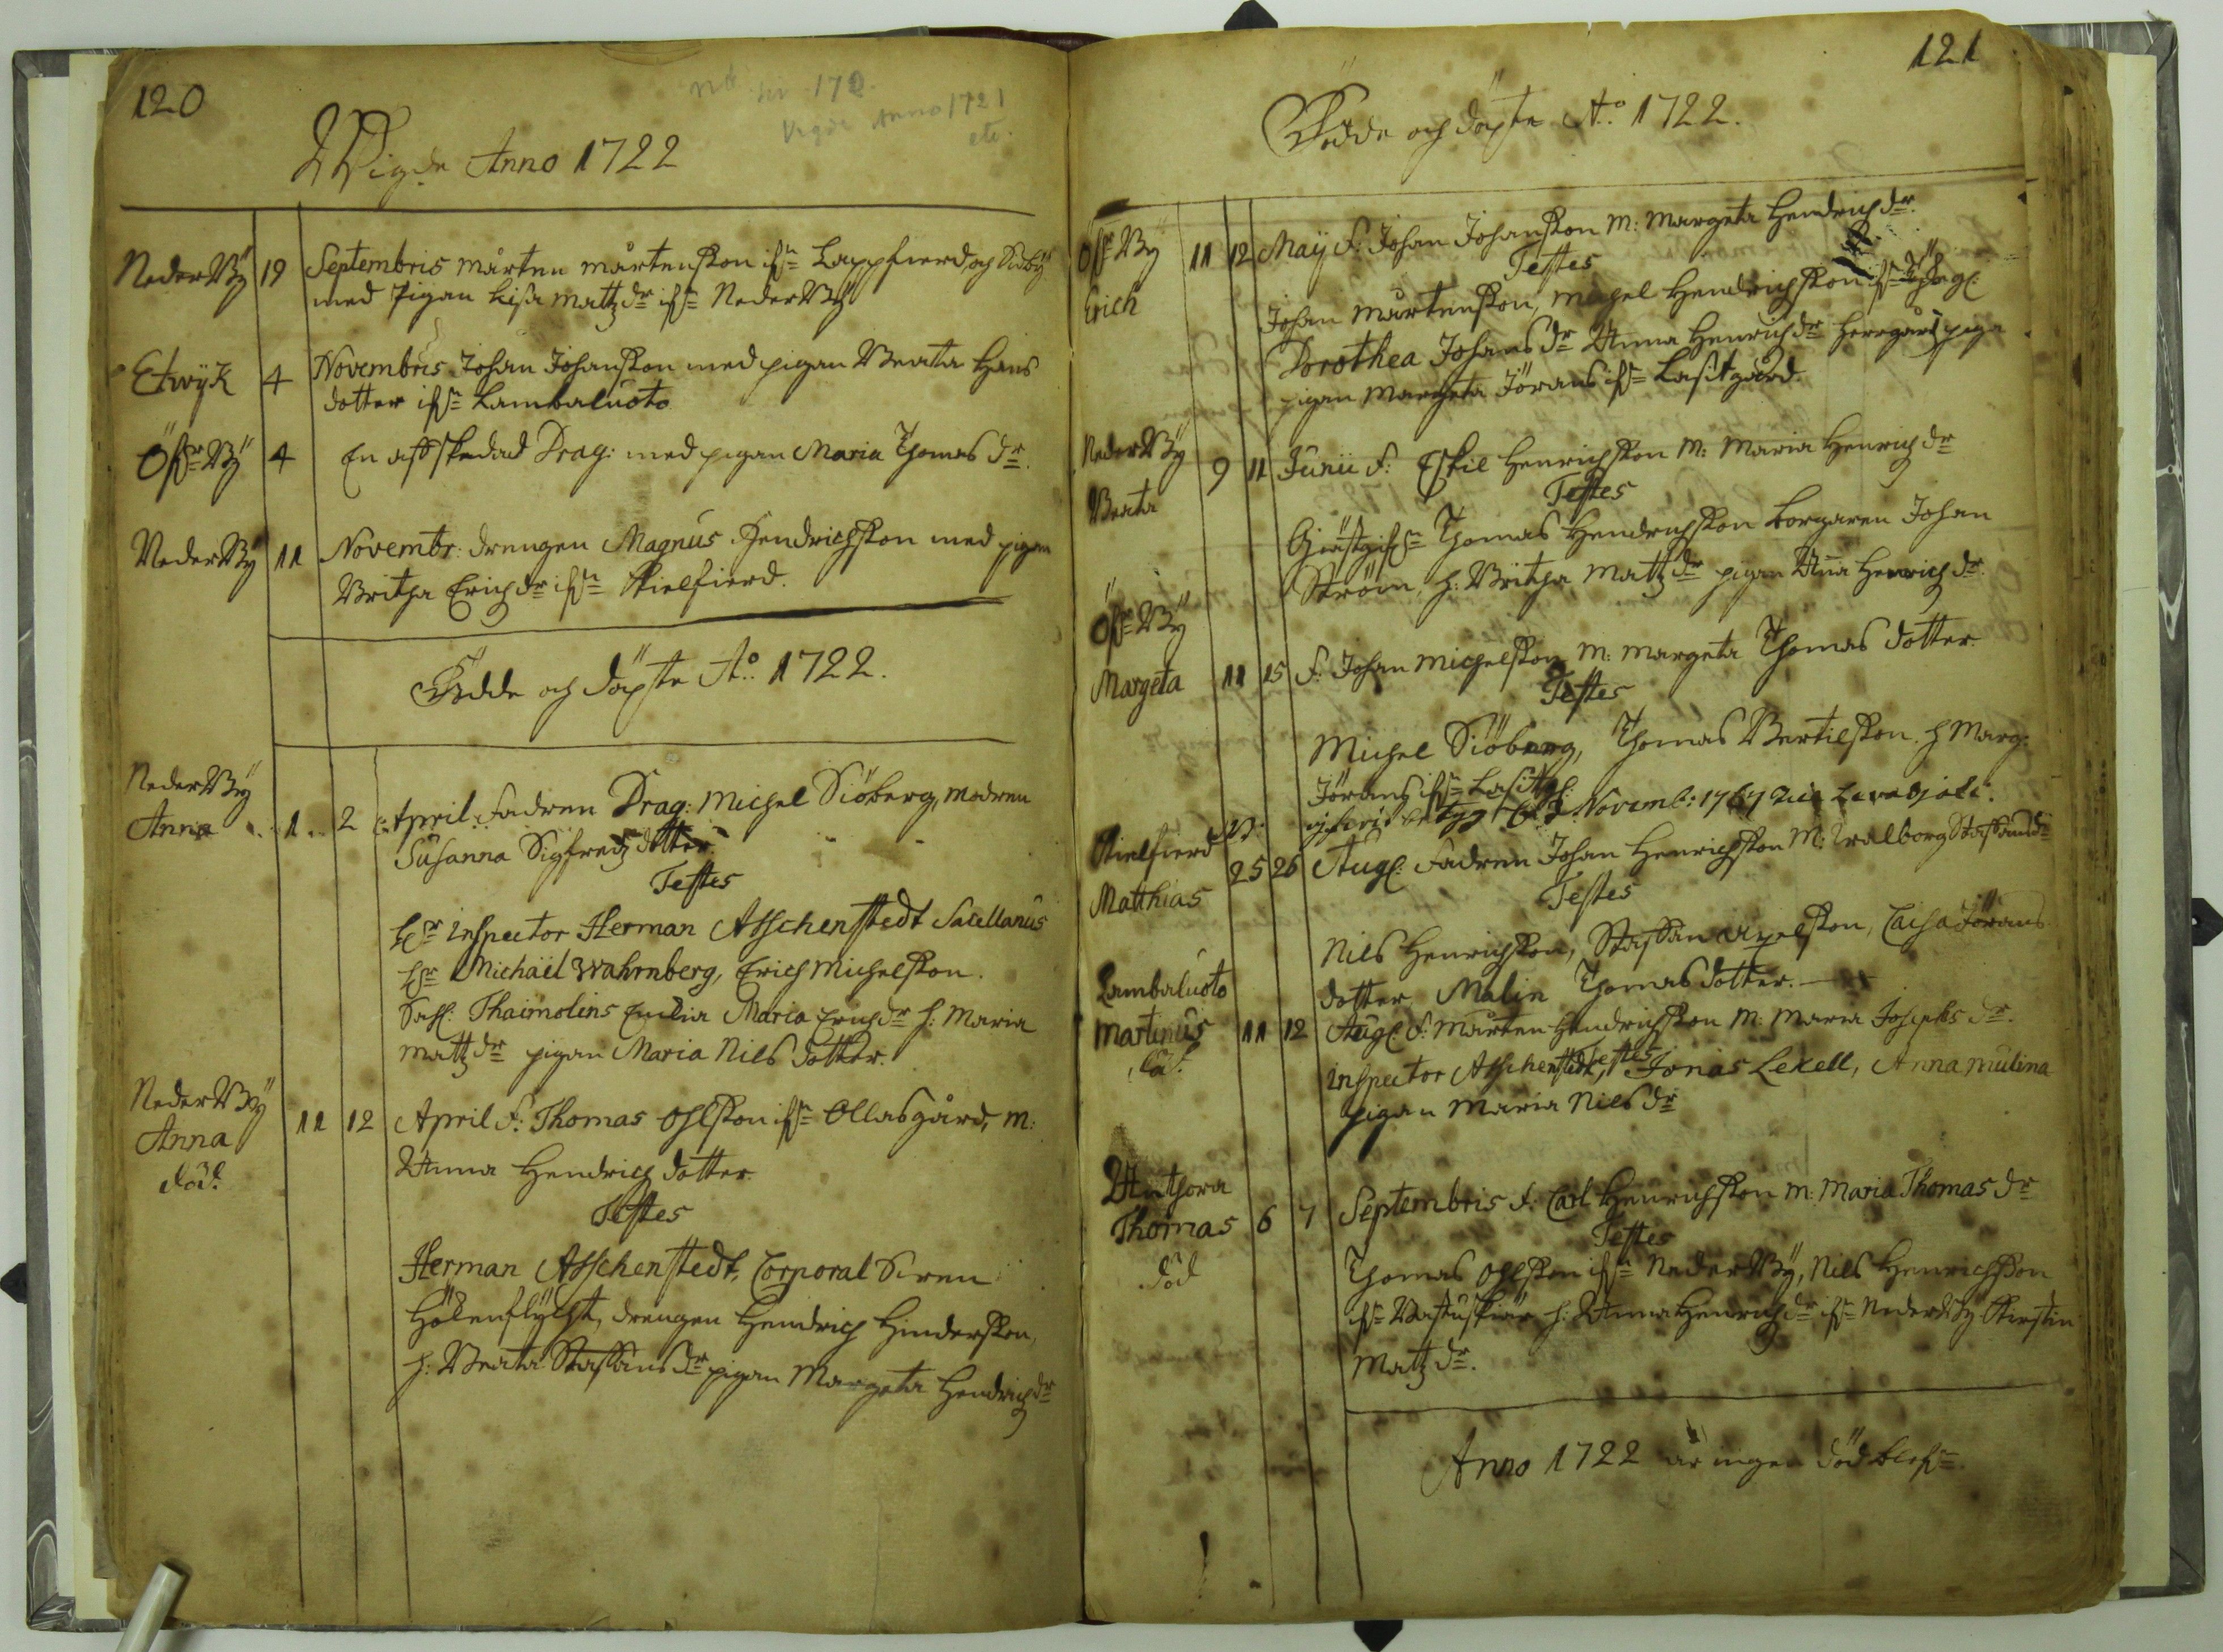 120
Wigde Anno 1722
Vigde Anno 1721
etc.
NederBÿ 19 Septembris Mårten Mårtensson ifrn Lappfierd och Sidbÿ
med Pigan Lisa Mattzdr ifrn NederBÿ
Etwÿk 4 Novembris Johan Johansson med pigan Beata Hans
dotter ifrn Lambaluoto
ÖfrBÿ 4 En affskedad Drag: med pigan Maria Thomasdr.
NederBÿ 11 Novembr: drengen Magnus Hendrichsson med pigan
Britha Erichdr ifrn Skielfierd.
Födde och döpte Ao. 1722.
NederBÿ
Anna 1 2 April. Fadren Drag: Michel Siöberg, modren
Susanna Sigfredz dotter
Testes
Hr Inspector Herman Asschenstedt Sacellanus
Hr Michaël Wahrnberg, Erich Michelsson.
Thaimolins Maria Erichdr h: Maria
Mattzdr pigan Maria Nilsdotter.
NederBÿ
Anna 11 12 April F: Thomas Ohlsson ifrn Ollasgård, M:
död. Anna Hendrich dotter.
Testes
Herman Asschenstedt, Corporal
drengen Hendrich Hindersson,
h: Beata Staffansdr pigan Margeta Hendrichdr
121
Födde och döpte Ao. 1722.
ÖfrBÿ 11 12 Maÿ F: Johan Johansson M: Margeta Hendrichdr.
Erich Testes
Johan Mårtensson, Michel Hendrichsson
Dorothea Johansdr Anna Henrichdr herrgårdzpiga
pigan Margeta Jörans ifrn Lasitgård.
NederBÿ 9 11 Junii F: Eskil Henrichsson M: Maria Henrichdr
Beata Testes
Thomas Hendrichsson borgaren Johan
Ström, h: Britha Mattzdr pigan Anna Henrichdr.
ÖfrBÿ
Margeta 11 15 F: Johan Michelsson M: Margeta Thomas dotter.
Testes
Michel Siöberg, Thomas Bertilsson. h Marg:
Jörans ifrn
Novemb: 1767
Skielfierd 25 26 Aug: Fadren Johan Henrichsson M: Walborg Staffansdr
Matthias Testes
Nils Henrichsson, Staffan Axelsson, Caisa Jörans
dotter, Malin Thomasdotter.
Lambaluoto
Martinus 11 12 Aug: F: Mårten Hendrichsson M: Maria Josephsdr.
Testes
Inspector Asschenstedt, Jonas Lexell, Anna Mulina
pigan Maria Nilsdr
Thomas 6 7 Septembris F: Carl Henrichsson M: Maria Thomasdr
död Testes
Thomas Ohlsson ifrn NederBÿ, Nils Henrichsson
h: Anna Henrichdr ifrn NederBÿ Kirstin
Mattzdr.
Anno 1722 är ingen död